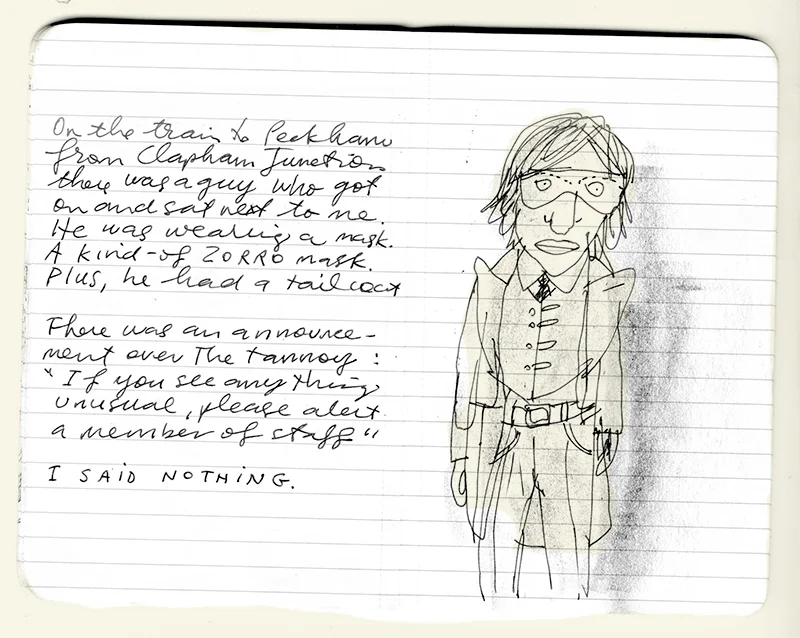 On the train to Peckham
from Clapham Junction
there was a guy who got
on and sat next to me.
He was wearing a mask.
A kind-of ZORRO mask.
Plus, he had a tailcoat
There was an announce-
ment over The tannoy :
"If you see anything
unusual, please alert
a member of staff"
I SAID NOTHING.